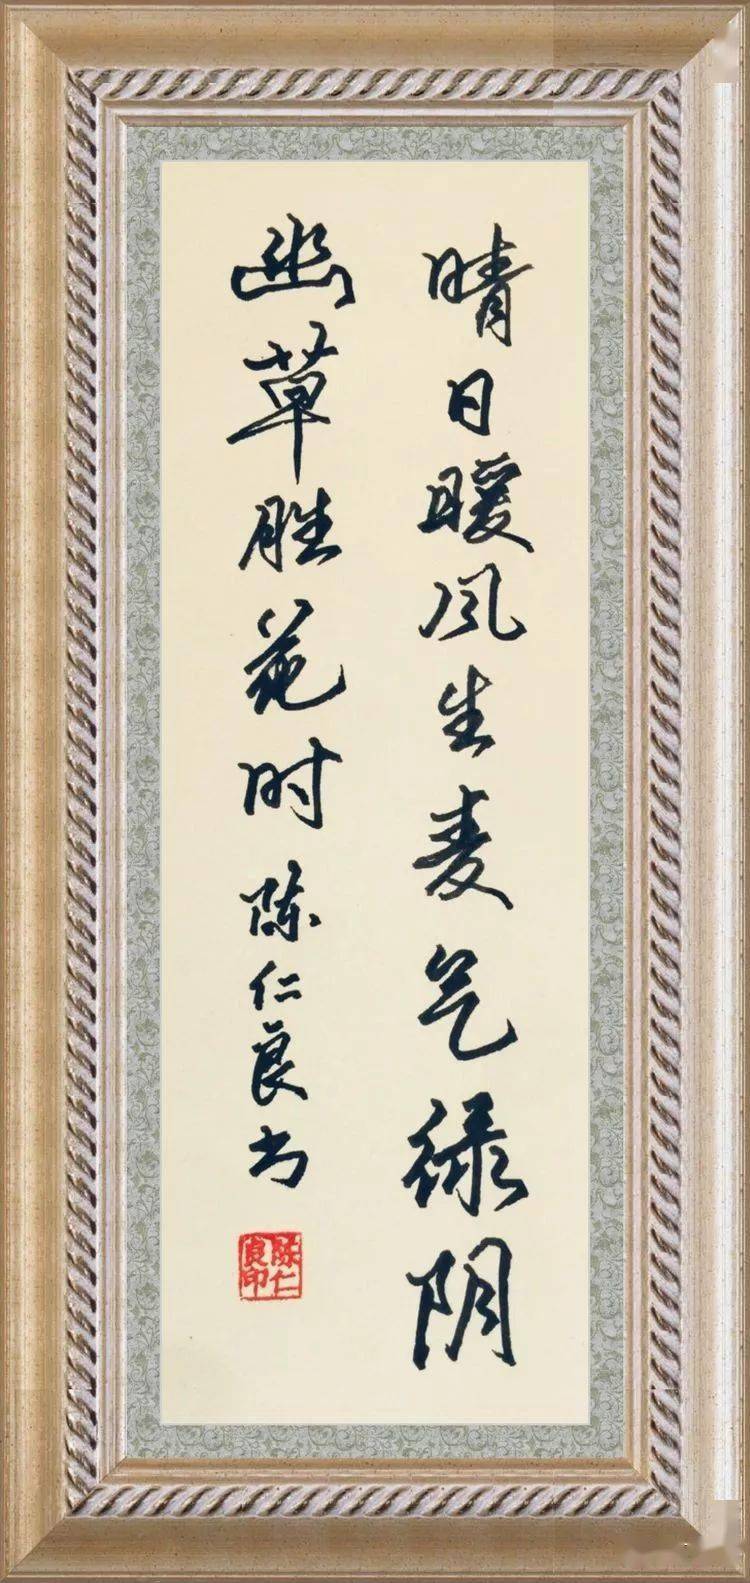 晴日暖风生麦气绿阴
幽草胜花时 陈仁良书
陈仁良印